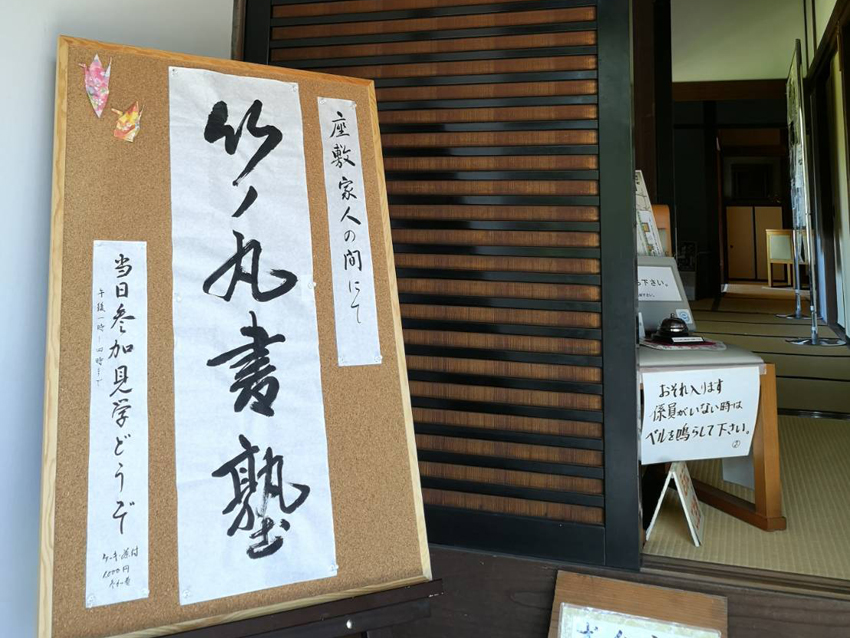 座敷家人の間にて
竹ノ丸書塾
当日参加見学どうぞ
午後一時〜四時まで
おそれ入ります
係員がいない時は
ベルを鳴らして下さい。
下さい。